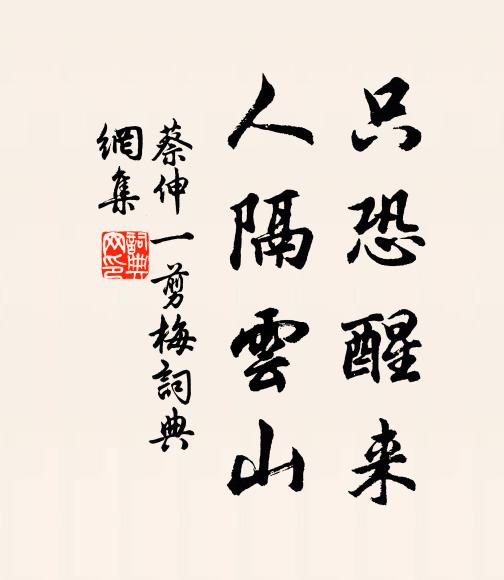 只恐醒来
人隔雲山
蔡伸一剪梅詞典
網集
詞典
网印